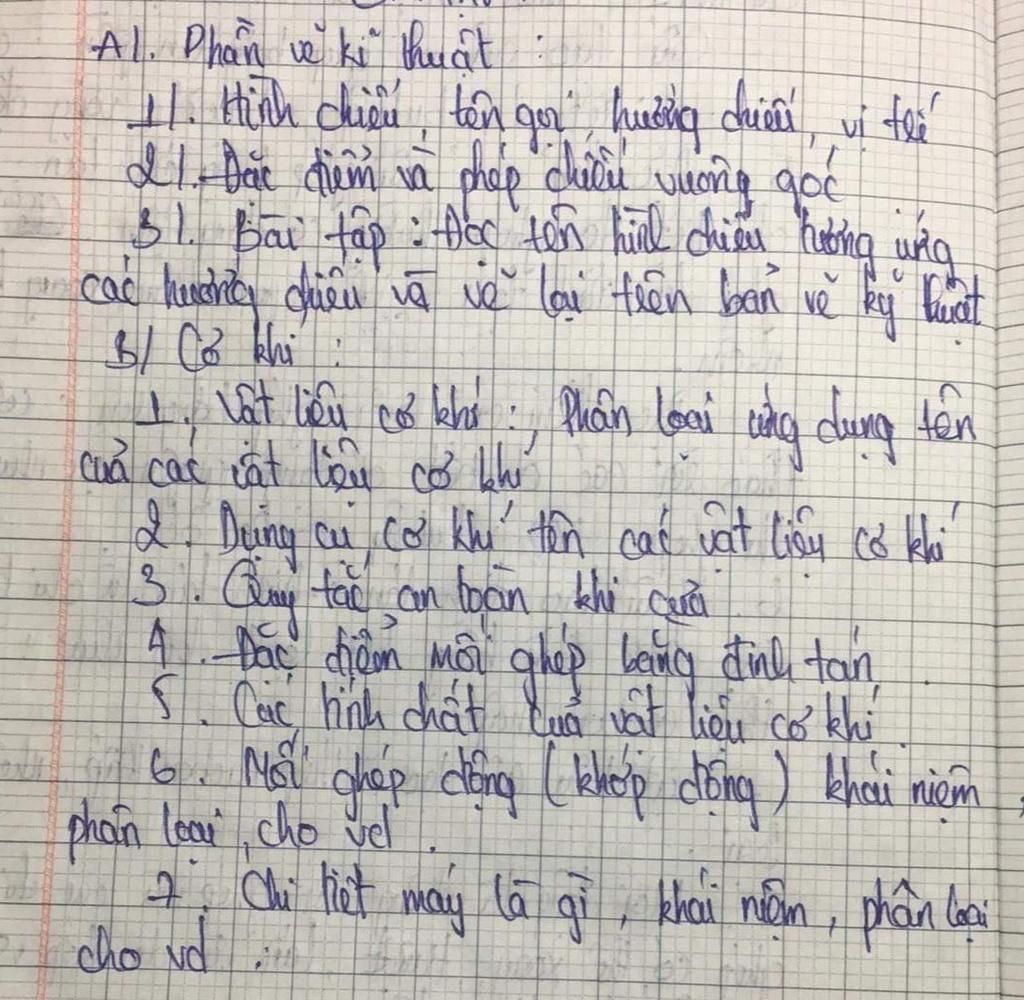 A/. Phần vẽ kĩ thuật :
1/. Hình chiếu, tên gọi, hướng chiếu, vị trí
2/. Đặc điểm và phép chiếu vuông góc
3/. Bài tập : Đọc tên hình chiếu hướng ứng
các hướng chiếu và vẽ lại trên bản vẽ kỹ thuật
B/ Cơ khí :
1. Vật liệu cơ khí :, Phân loại ứng dụng tên
của các vật liệu cơ khí
2. Dụng cụ, cơ khí tên các vật liệu cơ khí
3. Quy tắc an toàn khi cưa
4. Đặc điểm mối ghép bằng đinh tán
5. Các tính chất của vật liệu cơ khí.
6. Mối ghép động (khớp động) khái niệm
phân loại, cho vd.
7. Chi tiết máy là gì, khái niệm, phân loại
cho vd.